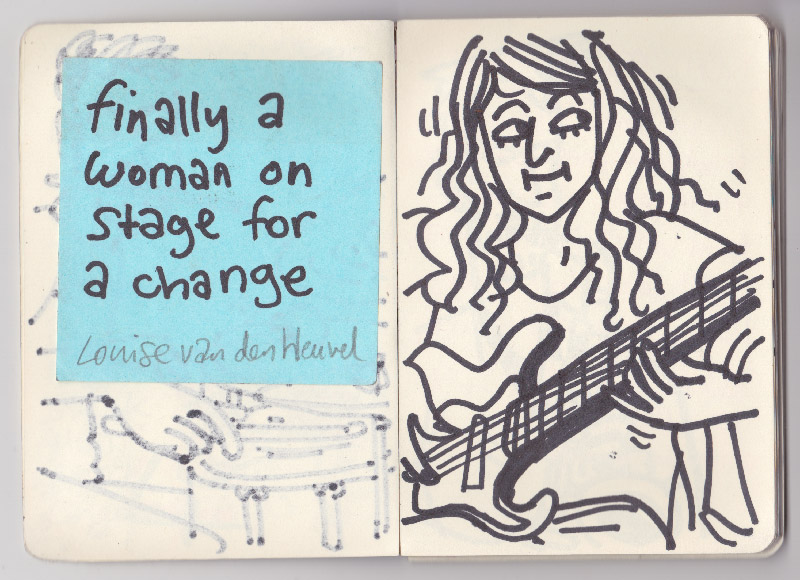 finally a
woman on
stage for
a change
Louise van den Heuvel